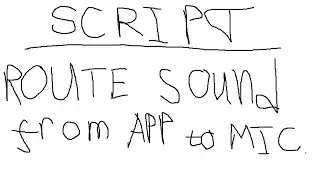 SCRIPT
ROUTE sound
from APP to MIC.